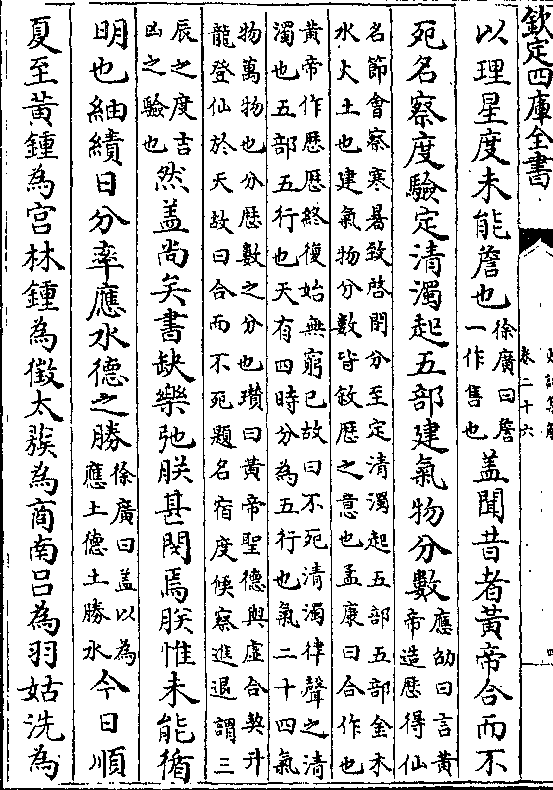 欽定四庫全書
卷二十六
以理星度未能詹也
徐廣曰詹
一作售也
盖聞昔者黃帝合而不
死名察度驗定清濁起五部建氣物分數
應劭曰言黃
帝造歷得仙
名節會察寒暑致啓閉分至定清濁起五部五部金木
水火土也建氣物分數皆敘歷之意也孟康曰合作也
黃帝作歷歷終復始無窮已故曰不死清濁律聲之清
濁也五部五行也天有四時分為五行也氣二十四氣
物萬物也分歷數之分也瓚曰黃帝聖德與虛合契升
龍登仙於天故曰合而不死題名宿度候察進退謂三
辰之度吉
凶之驗也
然盖尚矣書缺樂弛朕甚閔焉朕惟未能循
明也紬績日分率應水德之勝
徐廣曰盖以為
應土德土勝水
今日順
夏至黃鍾為宮林鍾為徵太蔟為商南吕為羽姑洗為